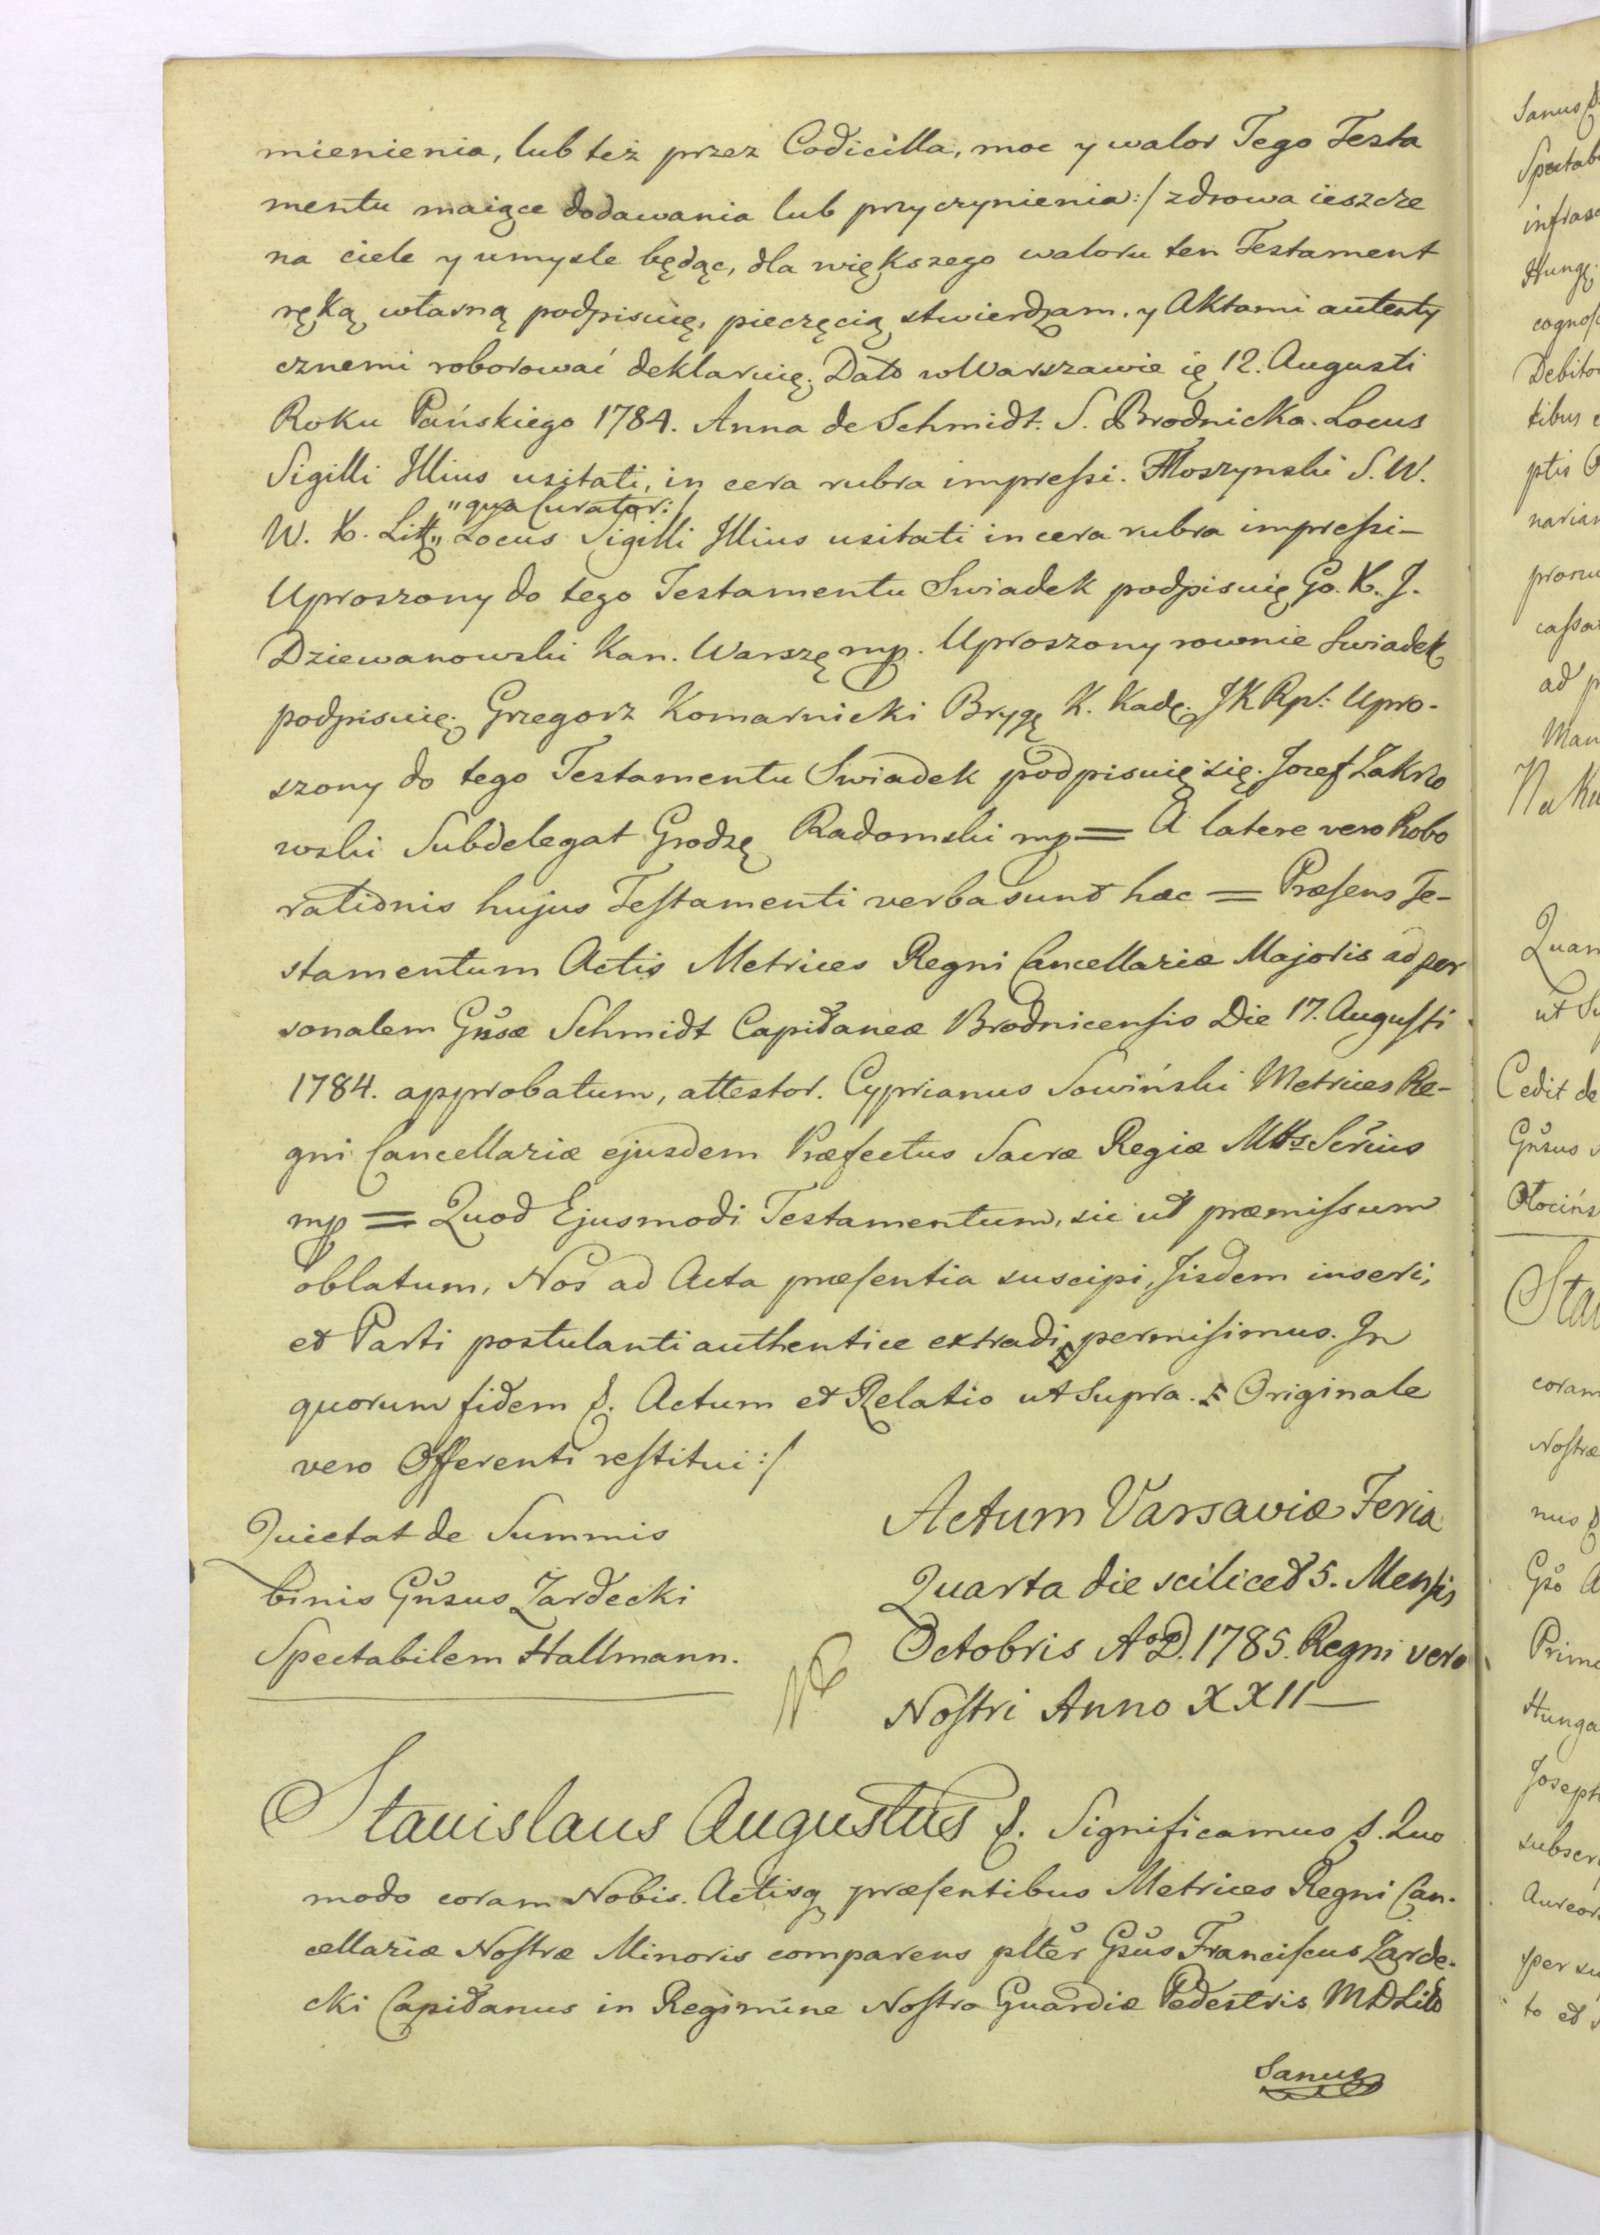 mienienia, lub też przez Codicilla, moc y walor Tego Testa
mentu maiące dodawania lub przyczynienia:/ zdrowa ieszcze
na ciele y umysle będąc, dla większego waloru ten Testament
ręką własną podpisuię, pieczęcią stwierdzam. y Aktami autenty
cznemi roborować deklaruię. Dato w Warszawie 12. Augusti
Roku Pańskiego 1784. Anna de Schmidt. S. Brodnicka. Locus
Sigilli Illius usitati, in cera rubra impressi. Moszynski S. W.
"qua Curator:
W. X. Litt" Locus Sigilli Illius usitati in cera rubra impressi –
Uproszony do tego Testamentu Swiadek podpisuię Go. K. J.
Dziewanowski Kan. Warszę mp. Uproszony rownie Swiadek
podpisuię. Grzegorz Komarnicki Brygę K. Kadę. JK Rpl: Upro-
szony do tego Testamentu Swiadek podpisuię się. Jozef Zakrzo
wski Subdelegat Grodzę Radomski mp = A latere vero Robo
rationis hujus Testamenti verba sunt haec = Præsens Te-
stamentum Actis Metrices Regni Cancellariæ Majoris ad per
sonalem Gnsæ Schmidt Capitaneæ Brodnicensis Die 17. Augusti
1784. approbatum, attestor. Cyprianus Sowiński Metrices Re-
gni Cancellariæ ejusdem Præfectus Sacræ Regiæ Mtts Scrius
mp = Quod Ejusmodi Testamentum, sic ut præmissum
oblatum, Nos ad Acta præsentia suscipi, Iisdem inseri,
et Parti postulanti authentice extradi permisimus. In
quorum fidem &. Actum et Relatio ut Supra. Originale
vero Offerenti restitui:/
Quietat de Summis
binis Gnsus Zardecki
Spectabilem Hallmann.
Actum Varsaviæ Feria
Quarta die scilicet 5. Mensis
Octobris A.o D. 1785. Regni vero
Nostri Anno XXII —
Stanislaus Augustus &. Significamus &. Quo
modo coram Nobis. Actisq præsentibus Metrices Regni Can-
cellariæ Nostræ Minoris comparens plter Gsus Franciscus Zarde-
cki Capitanus in Regimine Nostro Guardiæ Pedestris MDLitt
Sanus